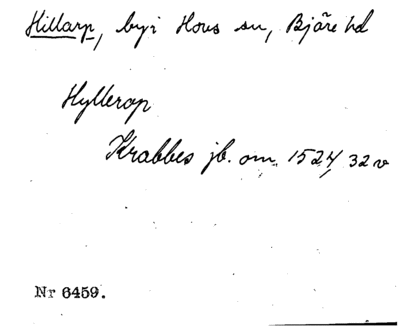 Hillarp, by i Hovs sn, Bjäre hd
Hyllerop
Krabbes jb. om. 1524, 32 v
Nr 6459.